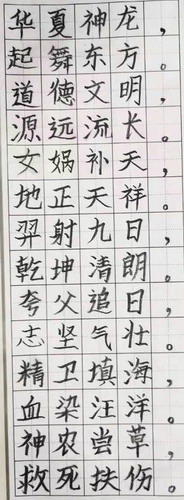 华夏神龙，
起舞东方。
道德文明，
源远流长。
女娲补天，
地正天祥。
羿射九日，
乾坤清朗。
夸父追日，
志坚气壮。
精卫填海，
血染汪洋。
神农尝草，
救死扶伤。